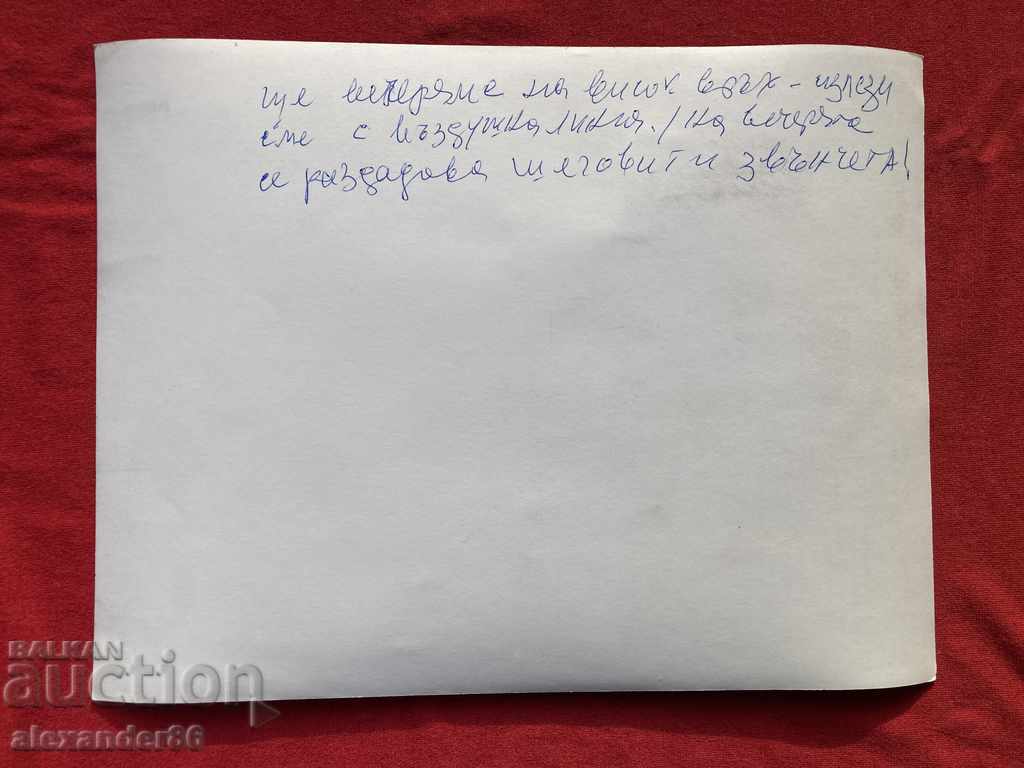 ще вечеряме на висок връх - излези
сме с въздушна линия. / на вечерята
се раздадова шеговити звънчета!
BALKAN
auction
alexander86